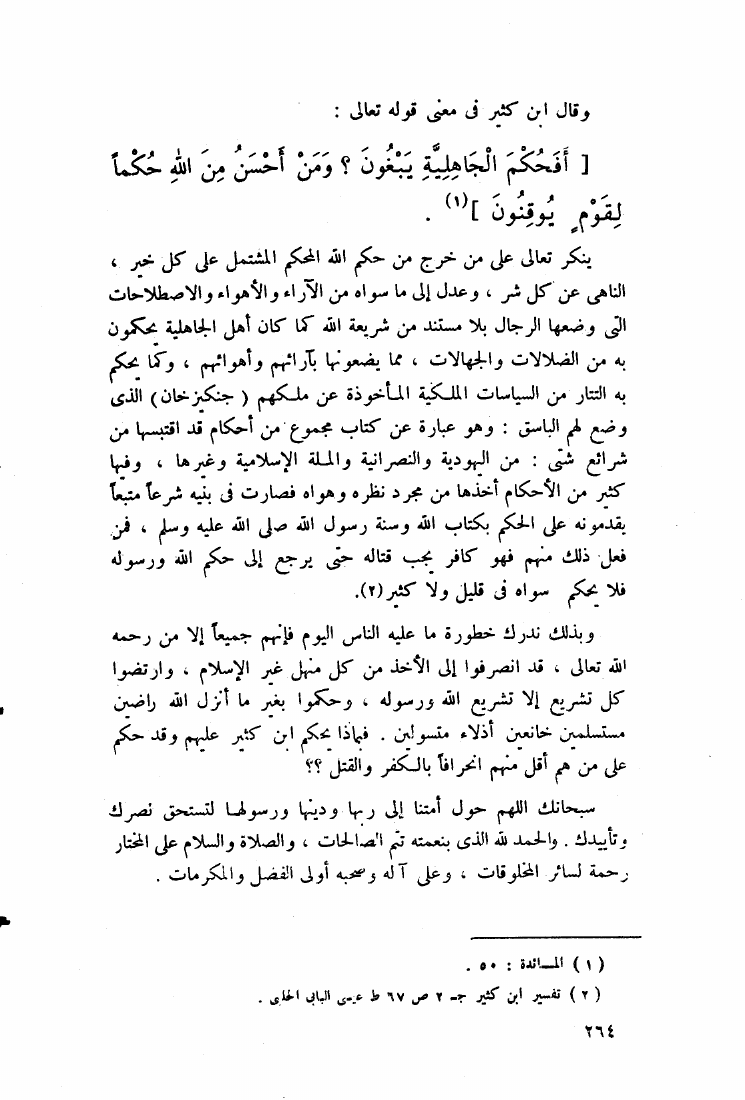 وقال ابن كثير فى معنى قوله تعالى :
[ أَفَحُكْمَ الْجَاهِلِيَّةِ يَبْغُونَ ؟ وَمَنْ أَحْسَنُ مِنَ اللهِ حُكْماً
لِقَوْمٍ يُوقِنُونَ ](١) .
ينكر تعالى على من خرج من حكم الله المحكم المشتمل على كل خير ،
الناهى عن كل شر ، وعدل إلى ما سواه من الآراء والأهواء والاصطلاحات
التى وضعها الرجال بلا مستند من شريعة الله كما كان أهل الجاهلية يحكمون
به من الضلالات والجهالات ، مما يضعونها بآرائهم وأهوائهم ، وكما يحكم
به التتار من السياسات الملكية المأخوذة عن ملكهم ( جنكيزخان ) الذى
وضع لهم الياسق : وهو عبارة عن كتاب مجموع من أحكام قد اقتبسها من
شرائع شتى : من اليهودية والنصرانية والملة الإسلامية وغيرها ، وفيها
كثير من الأحكام أخذها من مجرد نظره وهواه فصارت فى بنيه شرعاً متبعاً
يقدمونه على الحكم بكتاب الله وسنة رسول الله صلى الله عليه وسلم ، فمن
فعل ذلك منهم فهو كافر يجب قتاله حتى يرجع إلى حكم الله ورسوله
فلا يحكم سواه فى قليل ولا كثير(٢).
وبذلك ندرك خطورة ما عليه الناس اليوم فإنهم جميعاً إلا من رحمه
الله تعالى ، قد انصرفوا إلى الأخذ من كل منهل غير الإسلام ، وارتضوا
كل تشريع إلا تشريع الله ورسوله ، وحكموا بغير ما أنزل الله راضين
مستسلمين خانعين أذلاء متسولين . فبماذا يحكم ابن كثير عليهم وقد حكم
على من هم أقل منهم انحرافاً بالكفر والقتل ؟؟
سبحانك اللهم حول أمتنا إلى ربها ودينها ورسولها لتستحق نصرك
وتأييدك . والحمد لله الذى بنعمته تتم الصالحات ، والصلاة والسلام على المختار
رحمة لسائر المخلوقات ، وعلى آله وصحبه أولى الفضل والمكرمات .
( ١ ) المائدة : ٥٠ .
( ٢ ) تفسير ابن كثير جـ ٢ ص ٦٧ ط عيسى البابى الحلبى .
٢٦٤